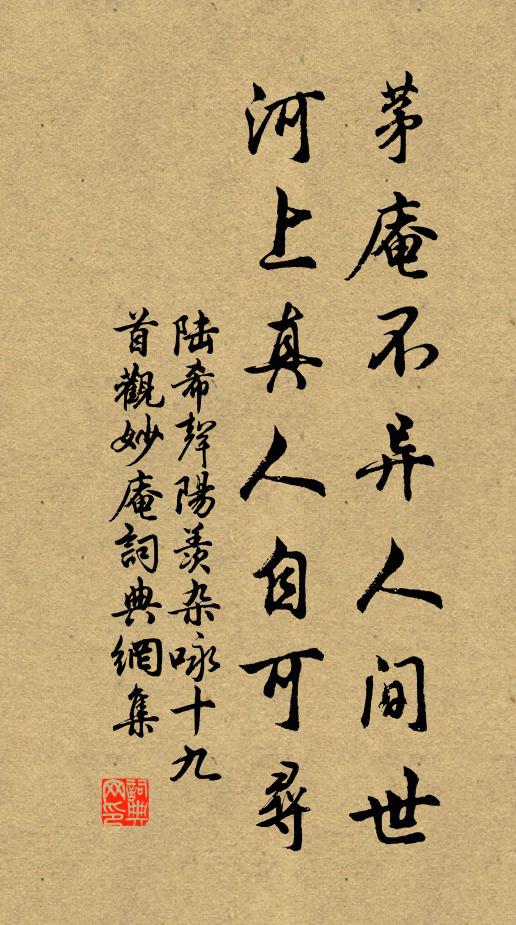 茅庵不异人间世
河上真人自可尋
陸希聲陽羨杂咏十九
首觀妙庵詞典網集
詞典网印